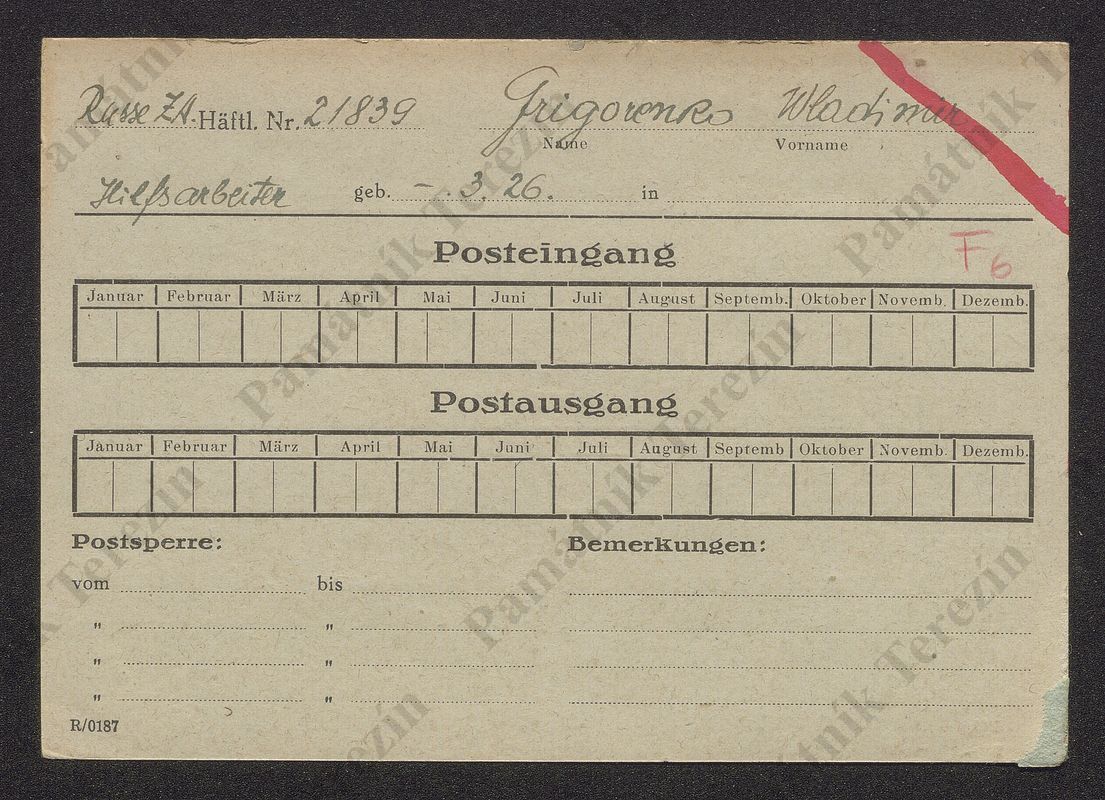 Russe ZA. Häftl. Nr. 21839 Grigorenko Wladimir
Name Vorname
Hilfsarbeiter geb. -. 3. 26. in
Posteingang
F 6
Januar Februar März April Mai Juni Juli August Septemb. Oktober Novemb. Dezemb.
Postausgang
Januar Februar März April Mai Juni Juli August Septemb Oktober Novemb. Dezemb.
Postsperre: Bemerkungen:
vom bis
" "
" "
" "
R/0187
Památník Terezín